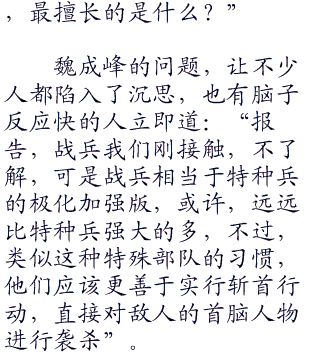 ，最擅长的是什么？”
魏成峰的问题，让不少
人都陷入了沉思，也有脑子
反应快的人立即道：“报
告，战兵我们刚接触，不了
解，可是战兵相当于特种兵
的极化加强版，或许，远远
比特种兵强大的多，不过，
类似这种特殊部队的习惯，
他们应该更善于实行斩首行
动，直接对敌人的首脑人物
进行袭杀”。